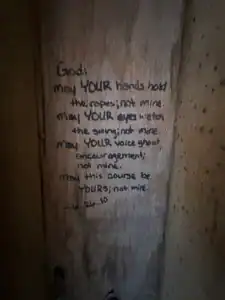 God:
may YOUR hands hold
the ropes; not mine.
may YOUR eyes watch
the swing; not mine.
may YOUR voice shout
encouragement;
not mine.
may this course be
YOURS; not mine.